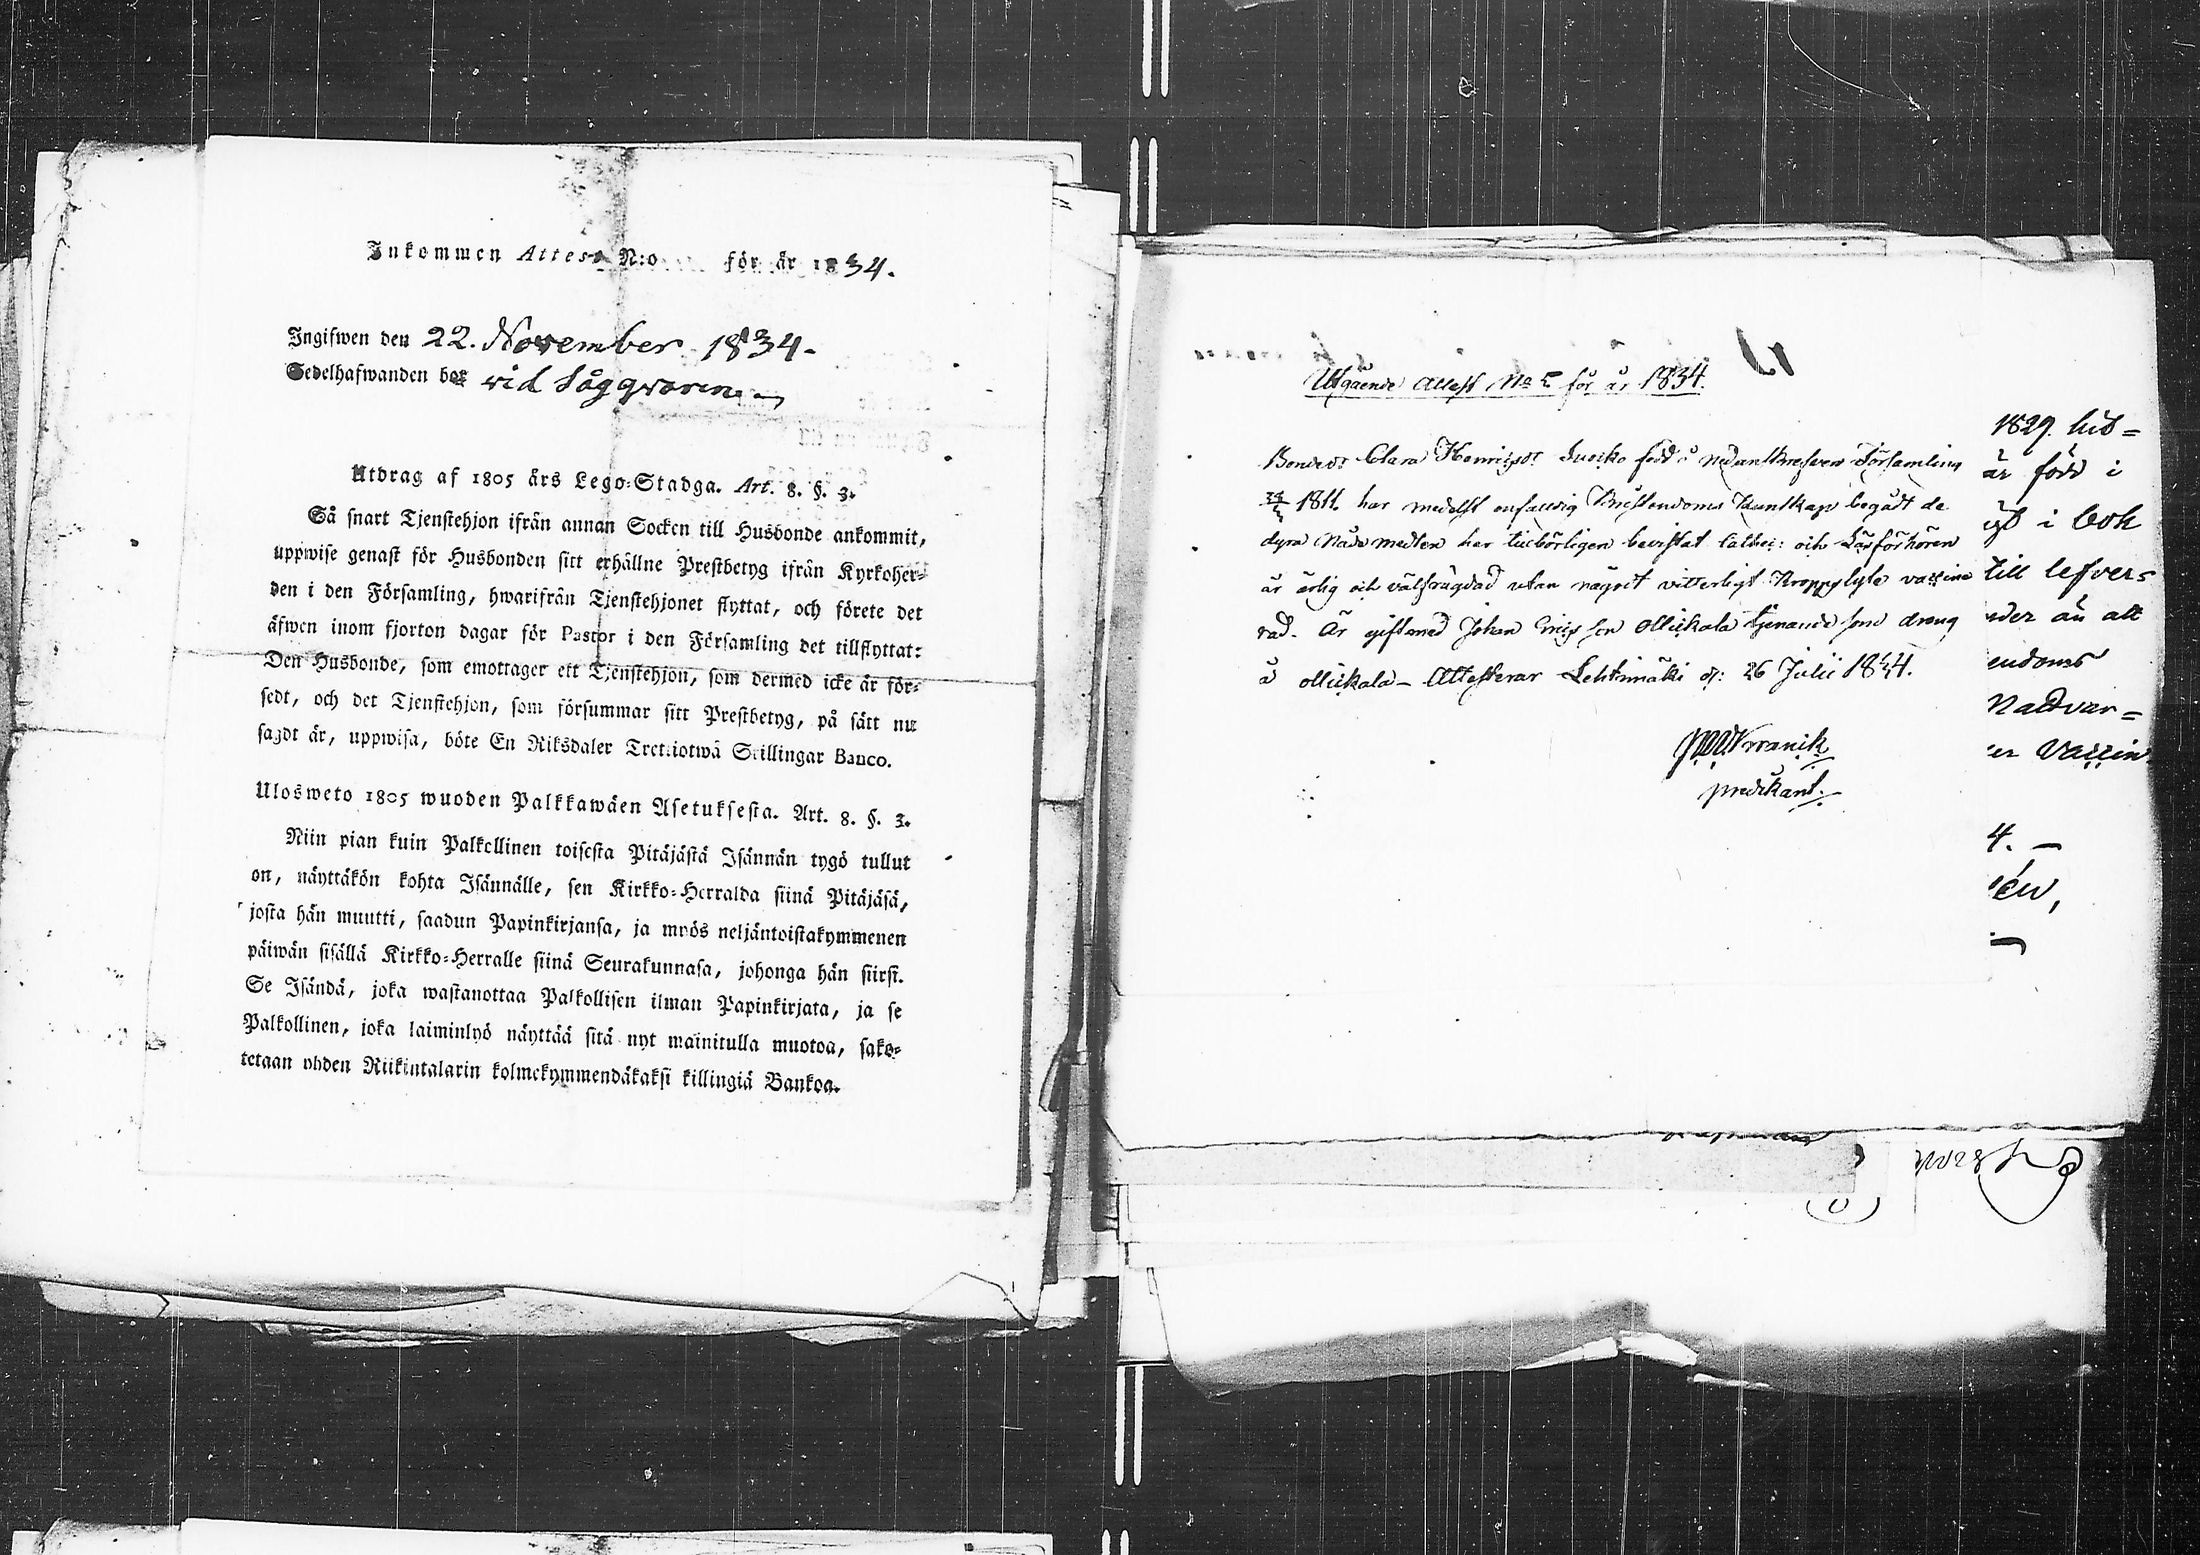 Inkommen Attest N:o för år 1834.
Ingifwen den 22. November 1834.
Sedelhafwanden bor vid Sågqvarn
Utdrag af 1805 års Lego-Stadga. Art. 8. §. 3.
Så snart Tjenstehjon ifrån annan Socken till Husbonde ankommit,
uppwise genast för Husbonden sitt erhållne Prestbetyg ifrån Kyrkoher-
den i den Församling, hwarifrån Tjenstehjonet flyttat, och förete det
äfwen inom fjorton dagar för Pastor i den Församling det tillflyttat:
Den Husbonde, som emottager ett Tjenstehjon, som dermed icke är för-
sedt, och det Tjenstehjon, som försummar sitt Prestbetyg, på sätt nu
sagdt är, uppwisa, böte En Riksdaler Trettiotwå Skillingar Banco.
Ulosweto 1805 wuoden Palkkawäen Asetuksesta. Art. 8. §. 3.
Niin pian kuin Palkollinen toisesta Pitäjästä Isännän tygö tullut
on, näyttäkön kohta Isännälle, sen Kirkko-Herralda siinä Pitäjäsä,
josta hän muutti, saadun Papinkirjansa, ja myös neljäntoistakymmenen
päiwän sisällä Kirkko-Herralle siinä Seurakunnasa, johonga hän siirst.
Se Isändä, joka wastanottaa Palkollisen ilman Papinkirjata, ja se
Palkollinen, joka laiminlyö näyttää sitä nyt mainitulla muotoa, sako-
tetaan yhden Riikintalarin kolmekymmendäkaksi killingiä Bankoa.
Utgående Attest No 5 för år 1834.
Clara Henricsdr född i Församling
1811. har medelst enfaldig Christendoms Kundskap begådt de
dyra Nåde medlen har tillbörligen bevistat och Läsförhören
är ärlig och välfrägdad utan något vitterligt Kroppslyte vaccine
rad. Är gift med Johan son Ollikala tjenande som dräng
å Ollikala – Attesterar Lehtimäki d: 26 Julii 1834.
predikant.
1829. hit=
är född i
i bok
till lefvers
än all
endoms
Nattvar=
vaccin
4. –